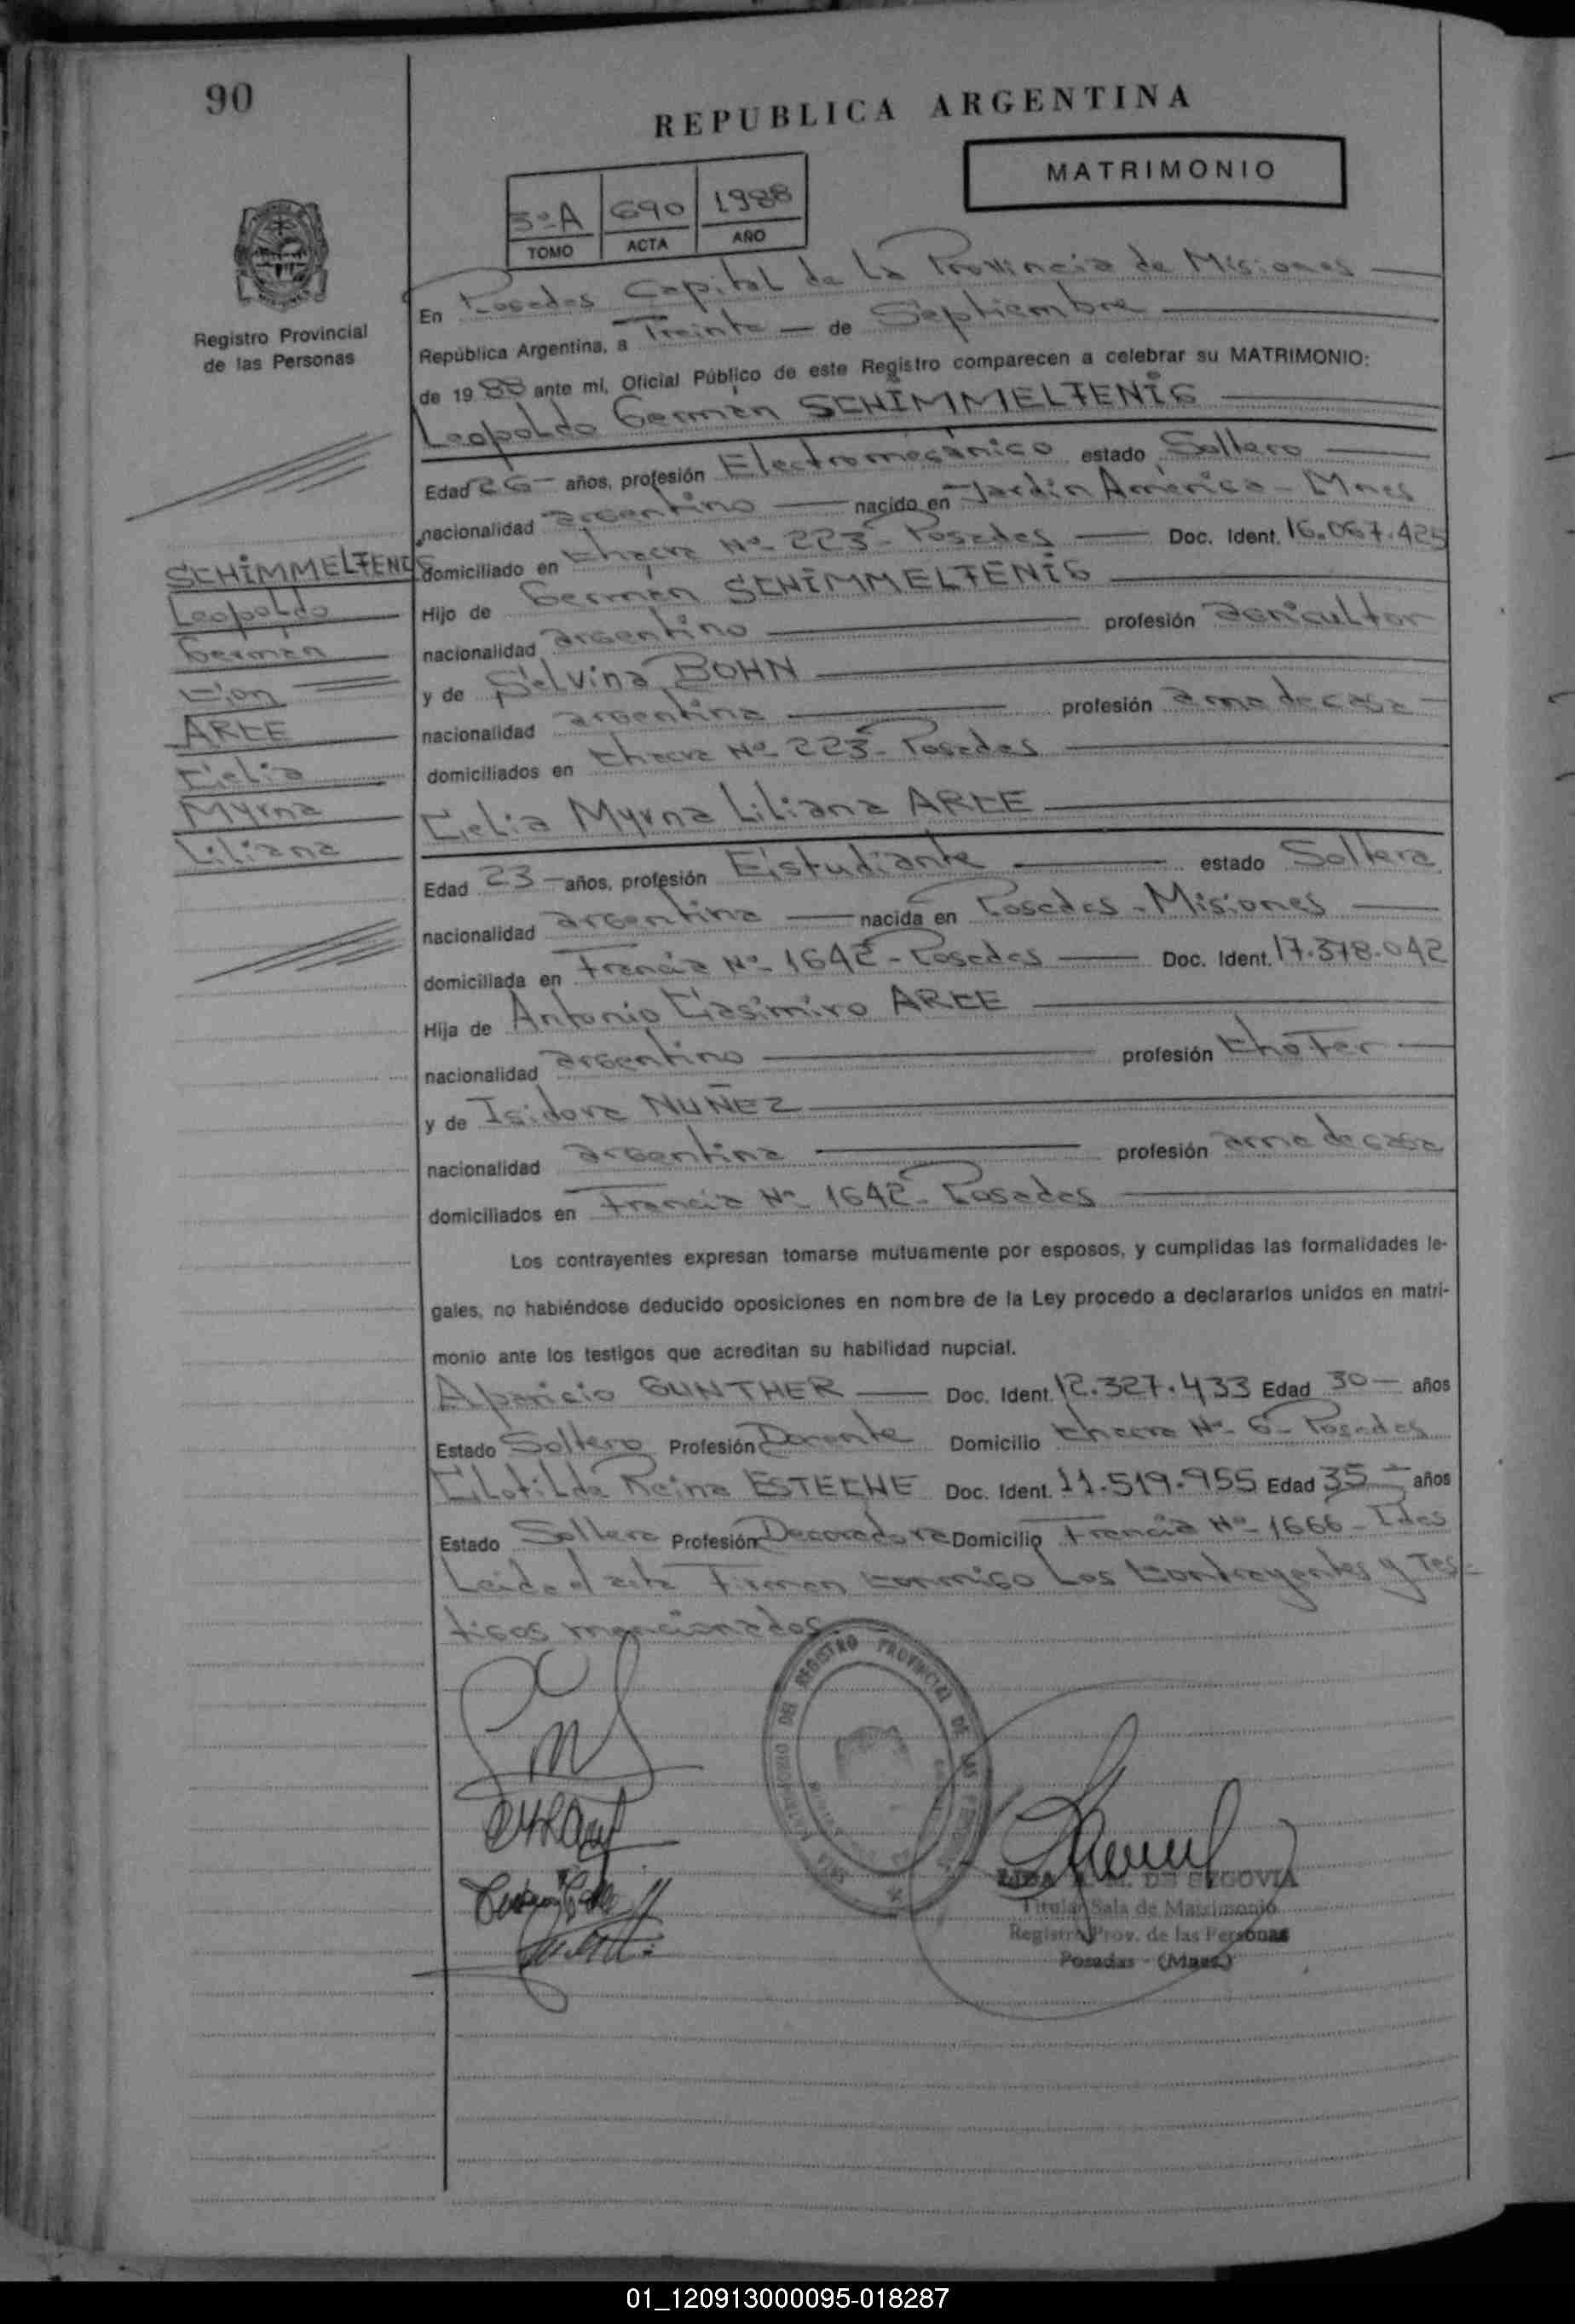 90
REPUBLICA ARGENTINA
MATRIMONIO
3º A 690 1988
TOMO ACTA AÑO
Registro Provincial
de las Personas
En Posadas Capital de la Provincia de Misiones
República Argentina, a Treinta de Septiembre
de 1988 ante mí, Oficial Público de este Registro comparecen a celebrar su MATRIMONIO:
Leopoldo Germán SCHIMMELFENIG
Edad 26 años, profesión Electromecánico estado Soltero
nacionalidad argentino nacido en Jardín América - Mnes
domiciliado en Chacra Nº 223 - Posadas Doc. Ident. 16.067.425
Hijo de Germán SCHIMMELFENIG
nacionalidad argentino profesión agricultor
y de Selvina BOHN
nacionalidad argentina profesión ama de casa
domiciliados en Chacra Nº 223 - Posadas
SCHIMMELFENIG
Leopoldo
Germán
Con
ARCE
Celia
Myrna
Liliana
Celia Myrna Liliana ARCE
Edad 23 años, profesión Estudiante estado Soltera
nacionalidad argentina nacida en Posadas - Misiones
domiciliada en Francia Nº 1642 - Posadas Doc. Ident. 17.378.042
Hija de Antonio Casimiro ARCE
nacionalidad argentino profesión Chofer
y de Isidora NUÑEZ
nacionalidad argentina profesión ama de casa
domiciliados en Francia Nº 1642 - Posadas
Los contrayentes expresan tomarse mutuamente por esposos, y cumplidas las formalidades le-
gales, no habiéndose deducido oposiciones en nombre de la Ley procedo a declararlos unidos en matri-
monio ante los testigos que acreditan su habilidad nupcial.
Aparicio GUNTHER Doc. Ident. 12.327.433 Edad 30 años
Estado Soltero Profesión Docente Domicilio Chacra Nº 6 - Posadas
Clotilde Reina ESTECHE Doc. Ident. 11.519.955 Edad 35 años
Estado Soltera Profesión Decoradora Domicilio Francia Nº 1666 - Pdas
Leida el acta Firman conmigo Los Contrayentes y Tes-
tigos mencionados
REGISTRO PROVINCIAL DE LAS PERSONAS
DE SEGOVIA
Titular Sala de Matrimonio
Registro Prov. de las Personas
Posadas - (Mnes.)
01_120913000095-018287